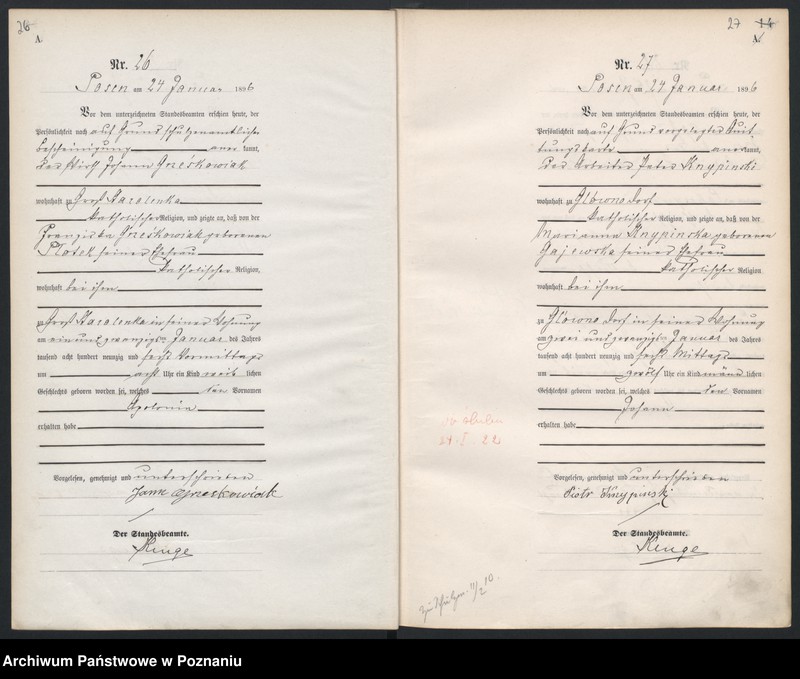 26
A.
Nr. 26
Posen am 24 Januar 1896
Vor dem unterzeichneten Standesbeamten erschien heute, der
Persönlichkeit nach auf Grund schulzenamtlicher
Bescheinigung anerkannt,
das Wirth Johann Grześkowiak
wohnhaft zu Groß Starolenka
katholischer Religion, und zeigte an, daß von der
Franziska Grześkowiak geborenen
Plotek seiner Ehefrau
katholischer Religion,
wohnhaft bei ihm
zu Groß Starolenka in seiner Wohnung
am ein und zwanzigsten Januar des Jahres
tausend acht hundert neunzig und sechs Vormittags
um acht Uhr ein Kind weib lichen
Geschlechts geboren worden sei, welches den Vornamen
Apolonia
erhalten habe
Vorgelesen, genehmigt und unterschrieben
Jann Grześkowiak
Der Standesbeamte.
27 14
A.
Nr. 27
Posen am 24 Januar 1896
Vor dem unterzeichneten Standesbeamten erschien heute, der
Persönlichkeit nach auf Grund vorgelegter Quit
tungskarte anerkannt,
der Arbeiter Peter Knypinski
wohnhaft zu Glówno Dorf
katholischer Religion, und zeigte an, daß von der
Marianna Knypinska geborenen
Gajewska seiner Ehefrau
katholischer Religion
wohnhaft bei ihm
zu Glówno Dorf in seiner Wohnung
am zwei und zwanzigsten Januar des Jahres
tausend acht hundert neunzig und sechs Mittags
um zwölf Uhr ein Kind männ lichen
Geschlechts geboren worden sei, welches den Vornamen
Johann
erhalten habe
Vorgelesen, genehmigt und unterschrieben
Piotr Knypinski
Der Standesbeamte.
21. I 22
Archiwum Państwowe w Poznaniu